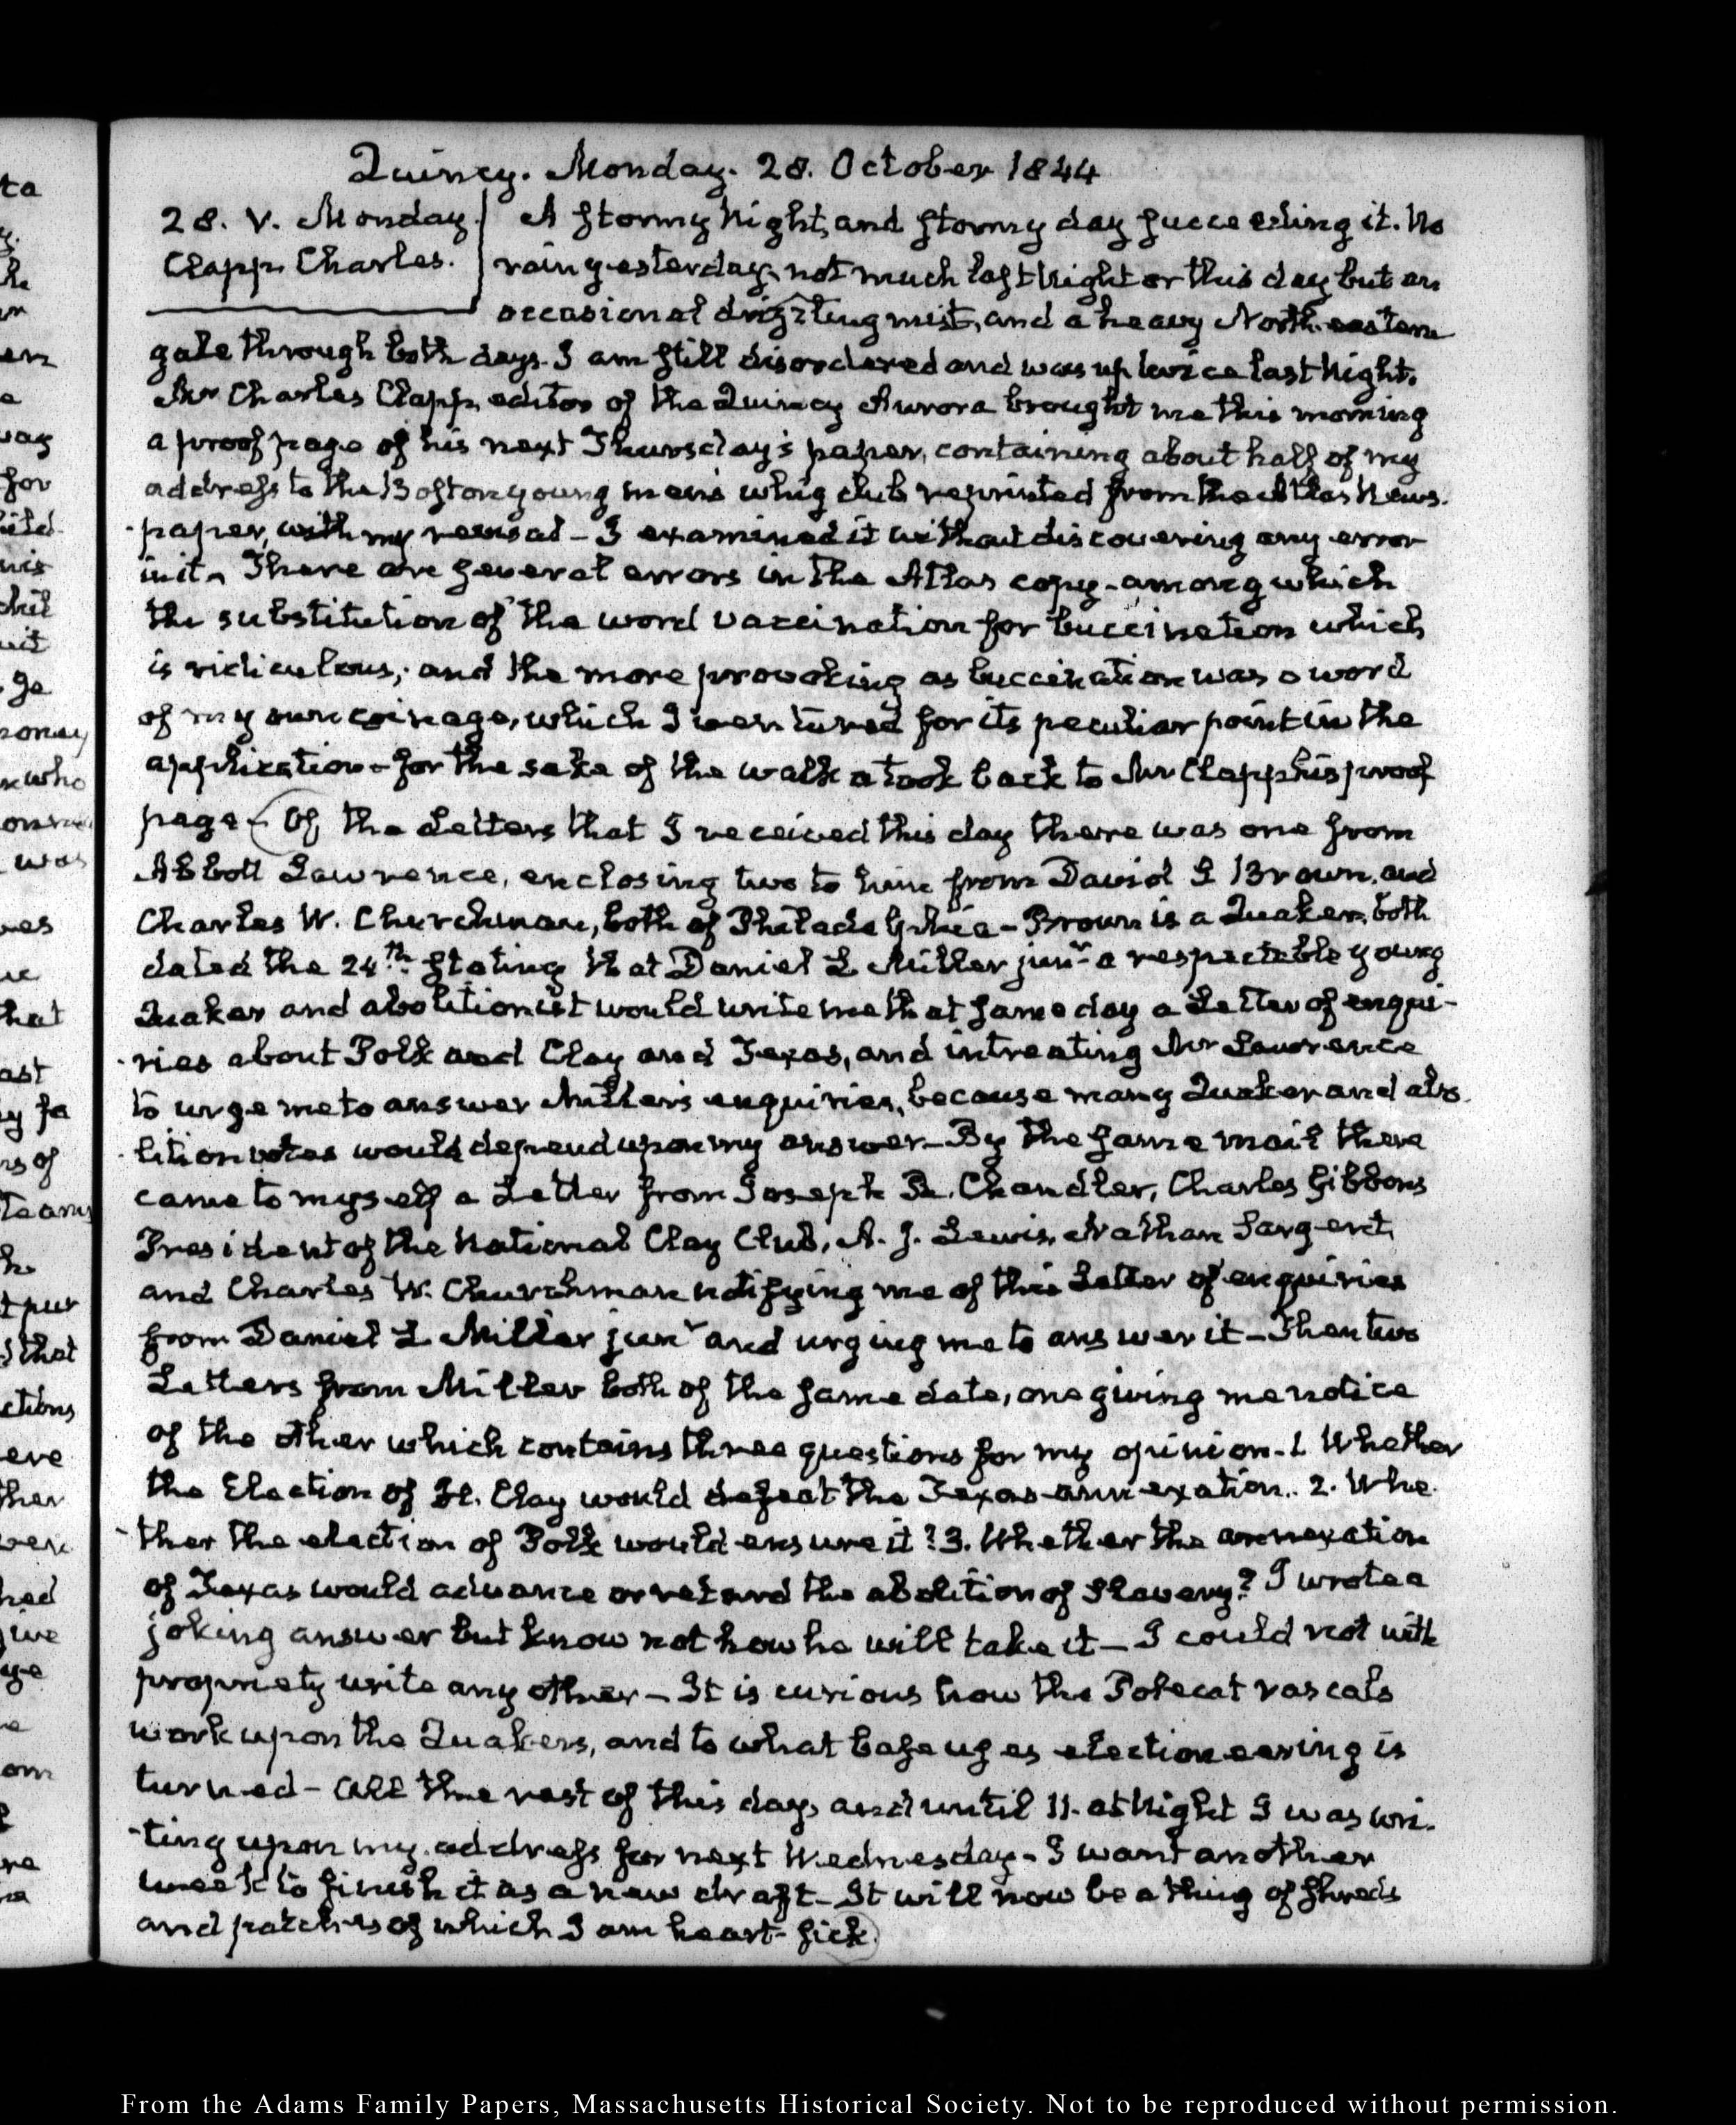 Quincy. Monday. 28. October 1844
28. V. Monday. A stormy Night, and stormy day succeeding it. No
Clapp. Charles. rain yesterday, not much last Night or this day but an
occasional drizzling mist, and a heavy North-eastern
gale through both days. I am still disordered and was up twice last Night.
Mr Charles Clapp, editor of the Quincy Aurora brought me this morning
a proof page of his next Thursday's paper, containing about half of my
address to the Boston young men's whig club reprinted from the Atlas News-
-paper, with my revisal — I examined it without discovering any error
in it. There are several errors in the Atlas copy - among which
the substitution of the word vaccination for buccination which
is ridiculous; and the more provoking as buccination was a word
of my own coinage, which I ventured for its peculiar point in the
application - for the sake of the walk I took back to Mr Clapp his proof
page - Of the Letters that I received this day there was one from
Abbott Lawrence, enclosing two to him from David S Brown, and
Charles W. Churchman, both of Philadelphia - Brown is a Quaker, both
dated the 24th. stating that Daniel L Miller junr a respectable young
Quaker and abolitionist would write me that same day a Letter of enqui-
-ries about Polk and Clay and Texas, and intreating Mr Lawrence
to urge me to answer Miller's enquiries, because many Quaker and abo-
-lition votes would depend upon my answer — By the same mail there
came to myself a Letter from Joseph R. Chandler, Charles Gibbons
President of the National Clay Club, A. J. Lewis, Nathan Sargent,
and Charles W. Churchman notifying me of this Letter of enquiries
from Daniel L Miller junr and urging me to answer it — Then two
Letters from Miller both of the same date, one giving me notice
of the other which contains three questions for my opinion. 1. Whether
the Election of H. Clay would defeat the Texas annexation.. 2. Whe-
-ther the election of Polk would ensure it? 3. Whether the annexation
of Texas would advance or retard the abolition of Slavery? I wrote a
joking answer but know not how he will take it — I could not with
propriety write any other — It is curious how the Polecat rascals
work upon the Quakers, and to what base uses electioneering is
turned - All the rest of this day, and until 11. at Night I was wri-
-ting upon my address for next Wednesday - I want another
week to finish it as a new draft - It will now be a thing of shreds
and patches of which I am heart-sick.
From the Adams Family Papers, Massachusetts Historical Society. Not to be reproduced without permission.